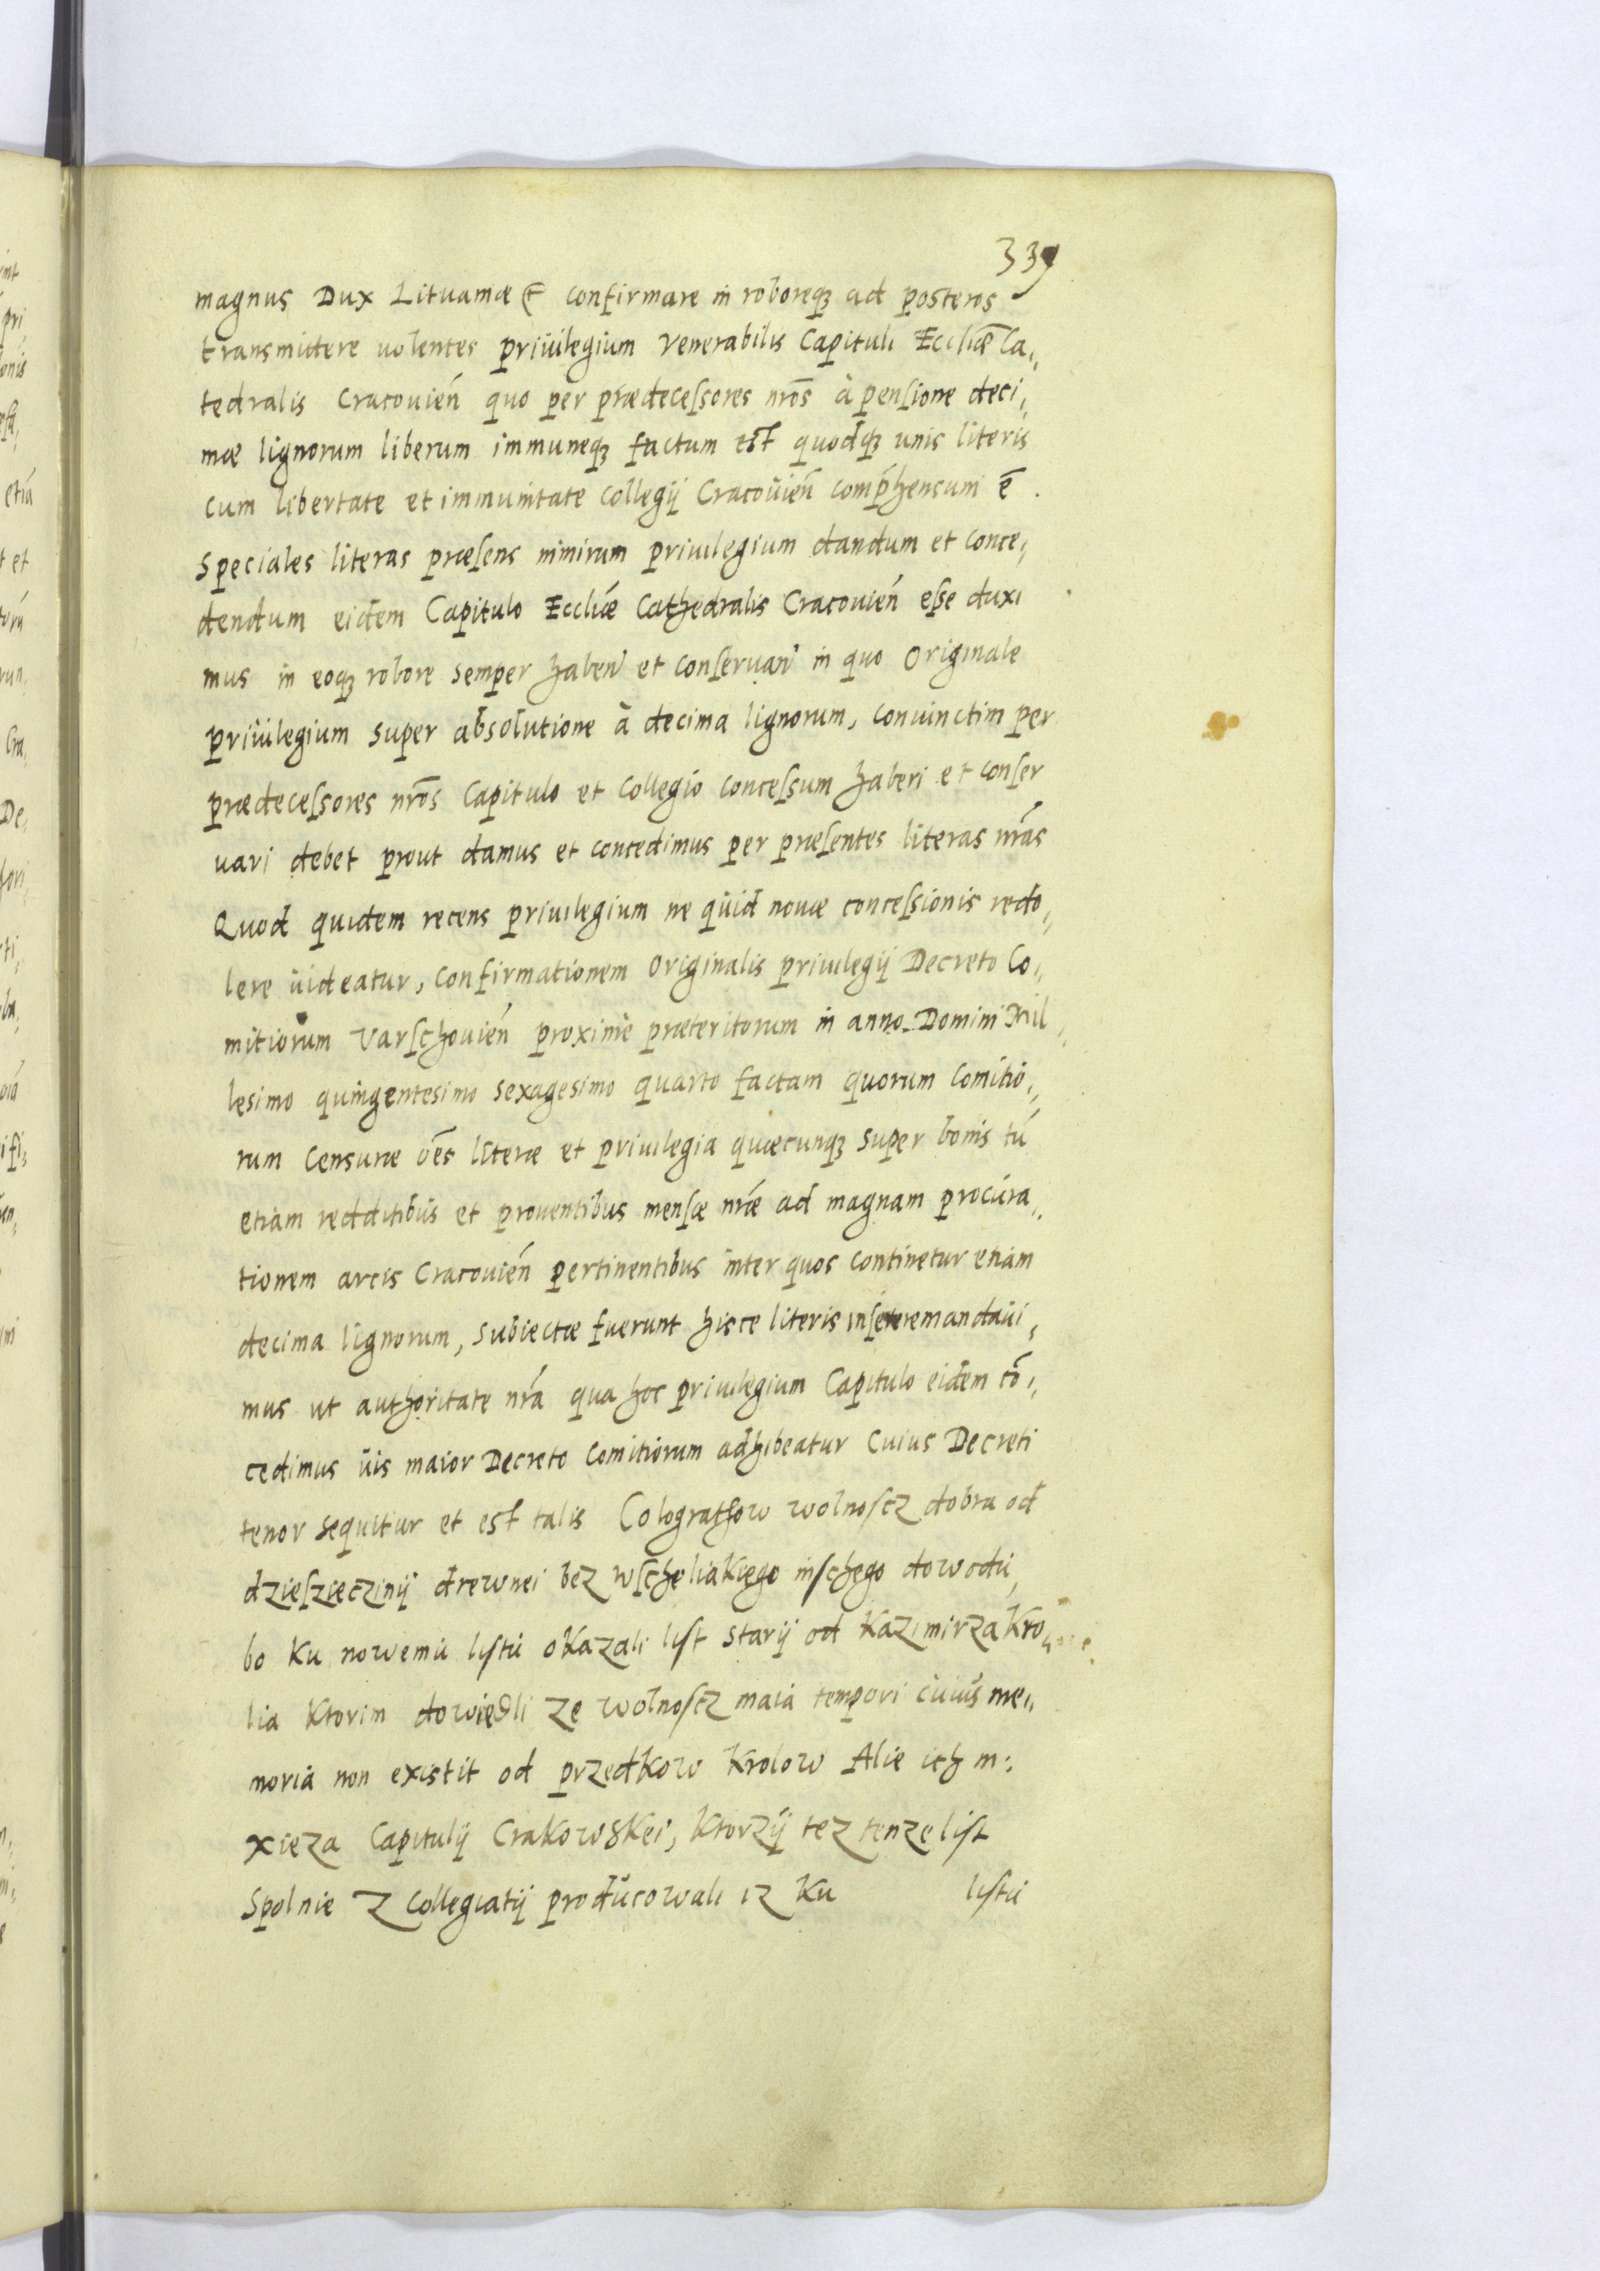 339
magnus Dux Lituaniæ &c confirmare in roboreqꝫ ad posteros
transmittere uolentes priuilegium venerabilis Capituli Eccliǣ Ca„
tedralis Cracouień quo per prædeceſsores nrōs à penſione deci„
mæ lignorum liberum immuneqꝫ factum est quodqꝫ unis literis
cum libertate et immunitate Collegij Cracouień comp̄hensum ē .
Speciales literas præſens nimirum priuilegium dandum et conce„
dendum eidem Capitulo Eccliæ Cathedralis Cracouień eſse duxi
mus in eoqꝫ robore semper haberi et conſeruari in quo Originale
priuilegium super absolutione à decima lignorum, conuinctim per
prædeceſsores nrōs Capitulo et Collegio conceſsum haberi et conſer
uari debet prout damus et concedimus per præſentes literas nrás
Quod quidem recens priuilegium ne quid nouæ conceſsionis redo„
lere uideatur, confirmationem Originalis priuilegij Decreto Co„
mitiorum Varſchouień proxime præteritorum in anno Domini Mil„
lesimo quingentesimo sexagesimo quarto factam quorum Comitio„
rum Censuræ oēs literæ et priuilegia quæcunqꝫ super bonis tú
etiam redditibus et prouentibus menſæ nræ ad magnam procura„
tionem arcis Cracouień pertinentibus inter quos continetur etiam
decima lignorum, subiectæ fuerunt hisce literis inſerere mandaui„
mus ut authoritate nrá qua hoc priuilegium Capitulo eidem cō„
cedimus uis maior Decreto Comitiorum adhibeatur Cuius Decreti
tenor sequitur et est talis Colograthow wolnoſcz dobra od
dzieſzieczinÿ drewnei bez wſcheliakiego inſchego dowodu,
bo ku nowemu liſtu okazali liſt starÿ od Kazimirza Kro„
lia ktorim dowiedli ze wolnoſcz maia tempori cuius me„
moria non existit od przedkow krolow Alie ich m:
xieza Capitulÿ Crakowskei, ktorzÿ tez tenze liſt
Spolnie z Collegiatÿ producowali iz ku liſtu